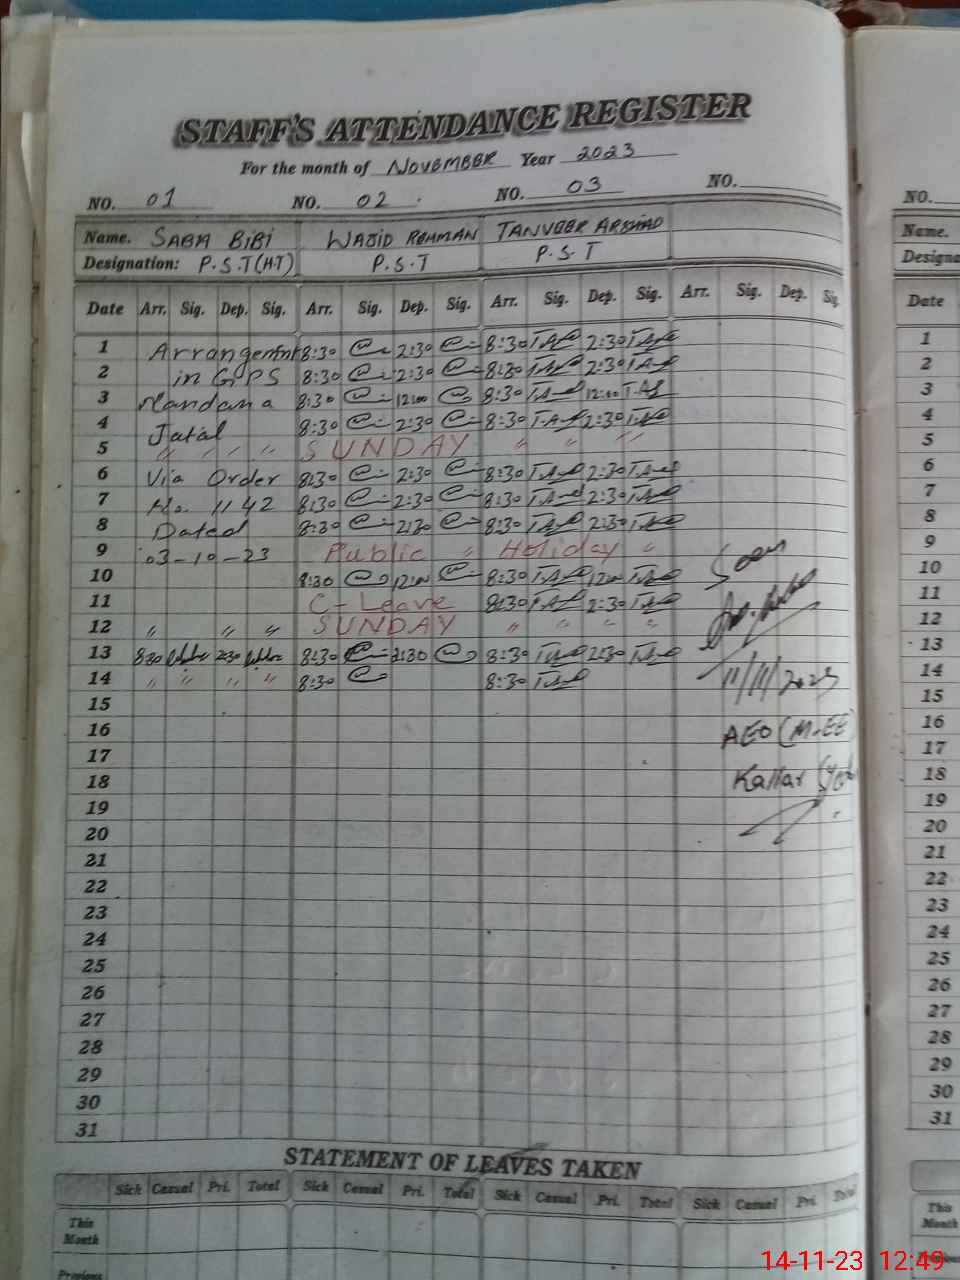 STAFF'S ATTENDANCE REGISTER
For the month of NOVEMBER Year 2023
NO. 01 NO. 02 NO. 03 NO. NO.
Name. SABA BIBI WAJID REHMAN TANVEER ARSHAD Name.
Designation: P.S.T(H.T) P.S.T P.S.T Designa
Date Arr. Sig. Dep. Sig. Arr. Sig. Dep. Sig. Arr. Sig. Dep. Sig. Arr. Sig. Dep. Sig. Date
1 Arrangement 8:30 2:30 8:30 2:30 1
2 in GPS 8:30 2:30 8:30 2:30 2
3 Nandana 8:30 12:00 8:30 12:00 3
4 Jatal 8:30 2:30 8:30 2:30 4
5 " " " " SUNDAY " " " 5
6 Via Order 8:30 2:30 8:30 2:30 6
7 No. 1142 8:30 2:30 8:30 2:30 7
8 Dated 8:30 2:30 8:30 2:30 8
9 03-10-23 Public " Holiday " 9
10 8:30 12:00 8:30 12:00 Seen 10
11 C-Leave 8:30 2:30 11
12 " " " SUNDAY " " " " 12
13 8:30 2:30 8:30 2:30 8:30 2:30 13
14 " " " " 8:30 8:30 11/11/2023 14
15 15
16 AEO (M-EE) 16
17 17
18 Kallar 18
19 19
20 20
21 21
22 22
23 23
24 24
25 25
26 26
27 27
28 28
29 29
30 30
31 31
STATEMENT OF LEAVES TAKEN
Sick Casual Pri. Total Sick Casual Pri. Total Sick Casual Pri. Total Sick Casual Pri. Total
This Month This Month
Previous
14-11-23 12:49